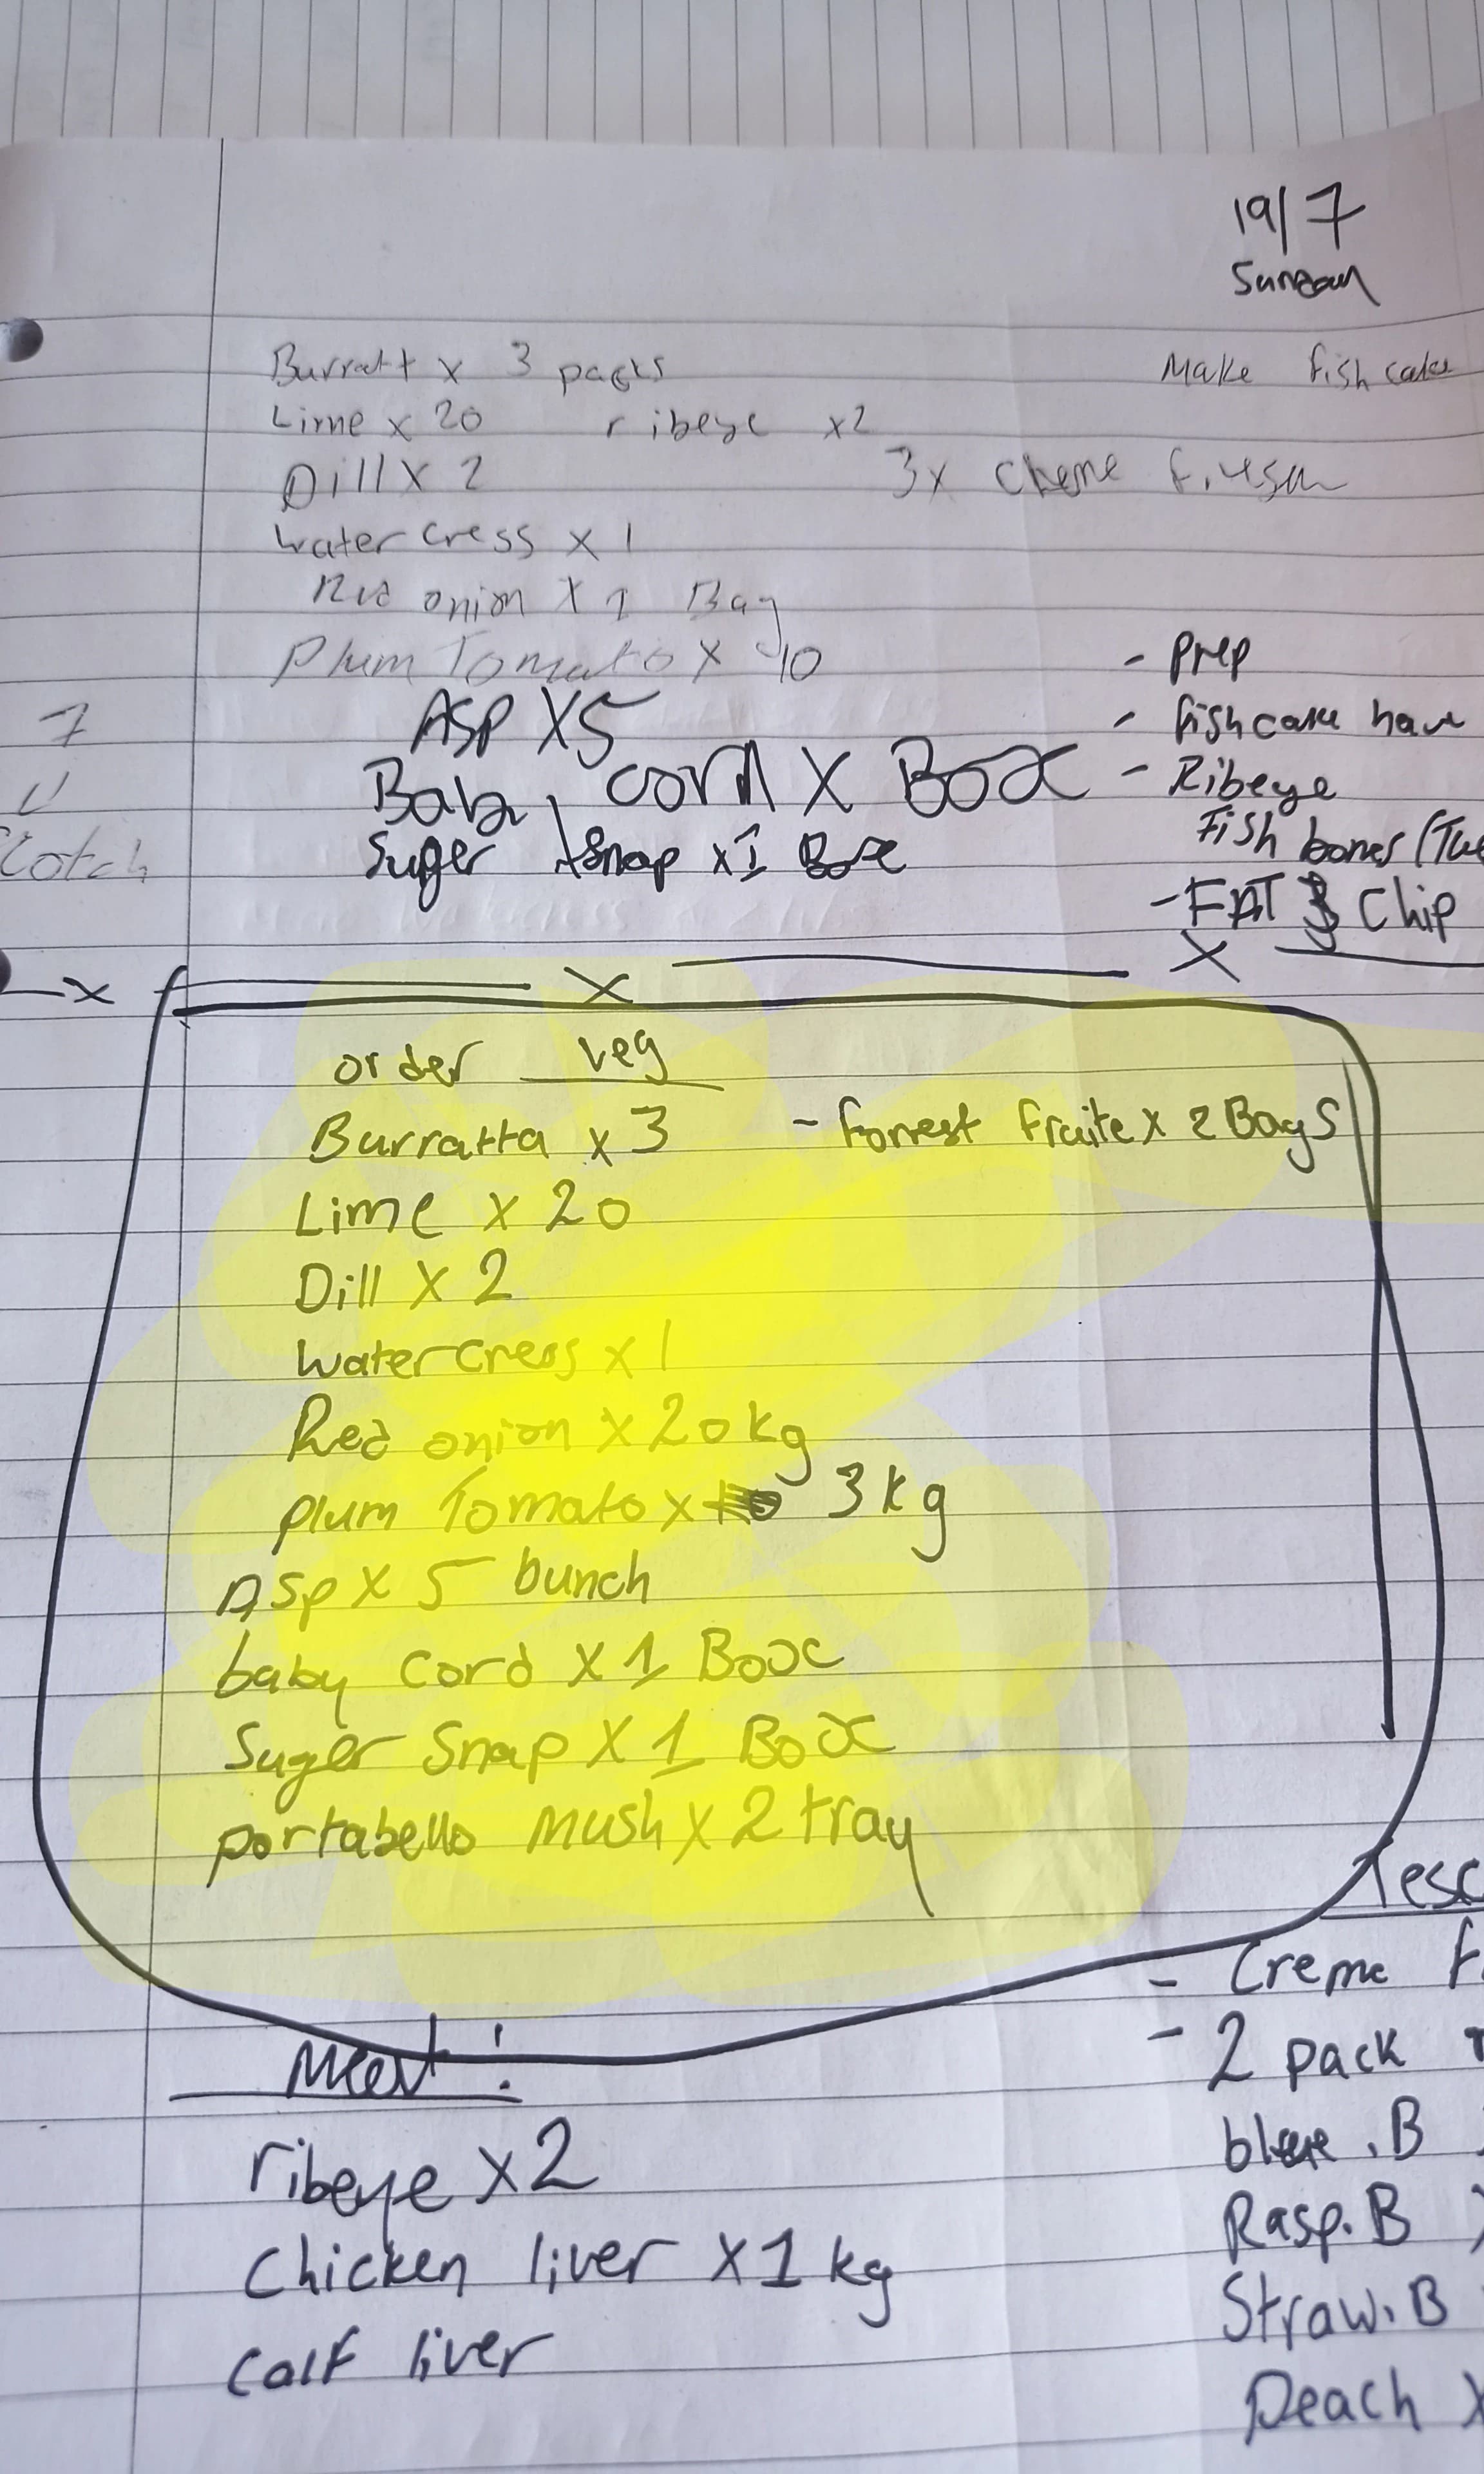 19/7
Burratt x 3 packs
Make fishcake
Lime x 20 ribeye x2
Dill x 2
3x
Water cress x 1
Red onion x 1 Bag
Plum Tomato x 10
- Prep
7
ASP x5
- fishcake
Baby corn x Box
- Ribeye
Suger Snap x1 Box
Fish bones
- FAT Chip
x x x
order veg
Burratta x 3 - forrest fruite x 2 Bags
Lime x 20
Dill x 2
Watercress x 1
Red onion x 20kg
Plum Tomato x 3kg
Asp x 5 bunch
baby cord x 1 Box
Suger Snap x 1 Box
portabello Mush x 2 tray
- Creme
- 2 pack
Meat :
ribeye x2
Rasp. B
Chicken liver x 1 kg
Straw. B
calf liver
Peach x